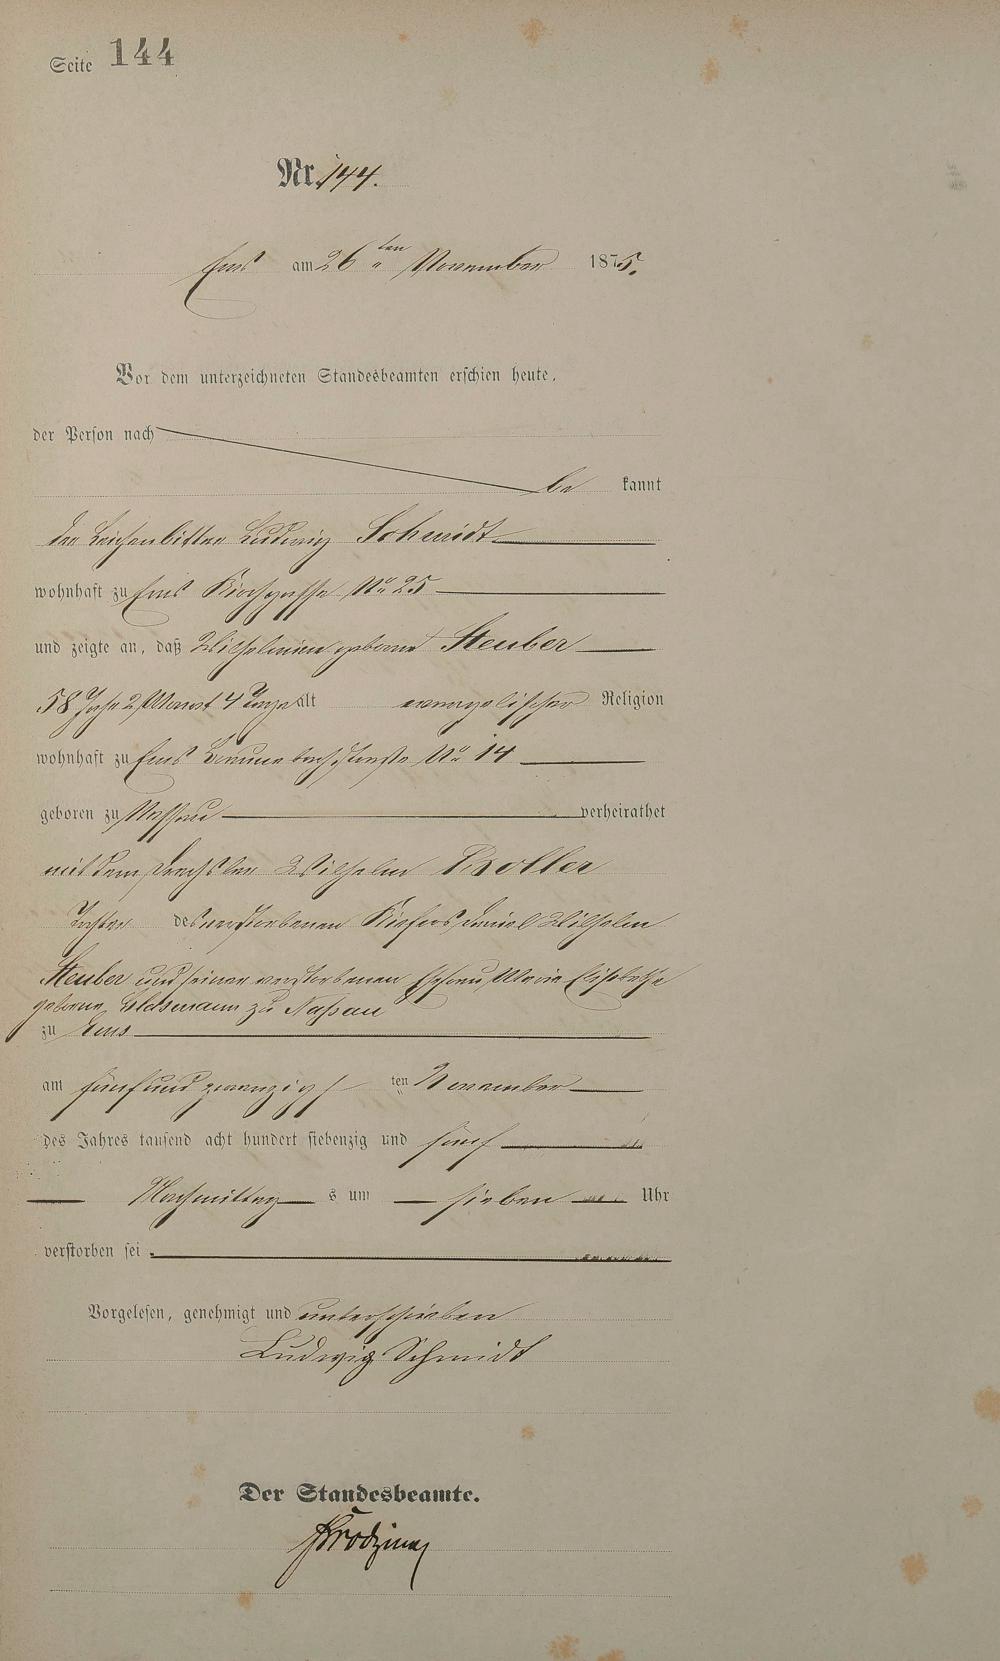 Seite 144
Nr. 144.
Ems am 26ten November 1875.
Vor dem unterzeichneten Standesbeamten erschien heute,
der Person nach
be kannt
der Leichenbitter Ludwig Schmidt
wohnhaft zu Ems Kirchgasse No 25
und zeigte an, daß Wilhelmine geborne Steuber
58 Jahr 2 Monat 4 Tage alt evangelischer Religion
wohnhaft zu Ems Braunebachstraße No 14
geboren zu Nassau verheirathet
mit dem Drechsler Wilhelm
Tochter des verstorbenen Küfers Daniel Wilhelm
Steuber und seiner verstorbenen Ehefrau Marie Elisabethe
geborne zu Nassau
zu Ems
am fünfundzwanzigs ten November
des Jahres tausend acht hundert siebenzig und fünf
Nachmittag s um sieben Uhr
verstorben sei
Vorgelesen, genehmigt und unterschrieben
Ludwig Schmidt
Der Standesbeamte.